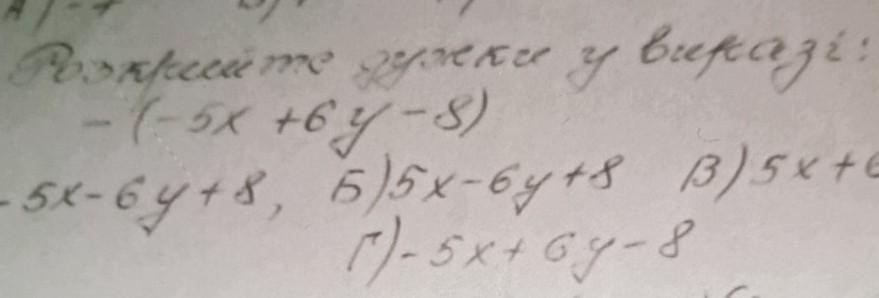 Розкрийте дужки у виразі:
-(-5x +6y -8)
-5x-6y+8, Б)5x-6y+8 В)5x+6
Г)-5x+6y-8